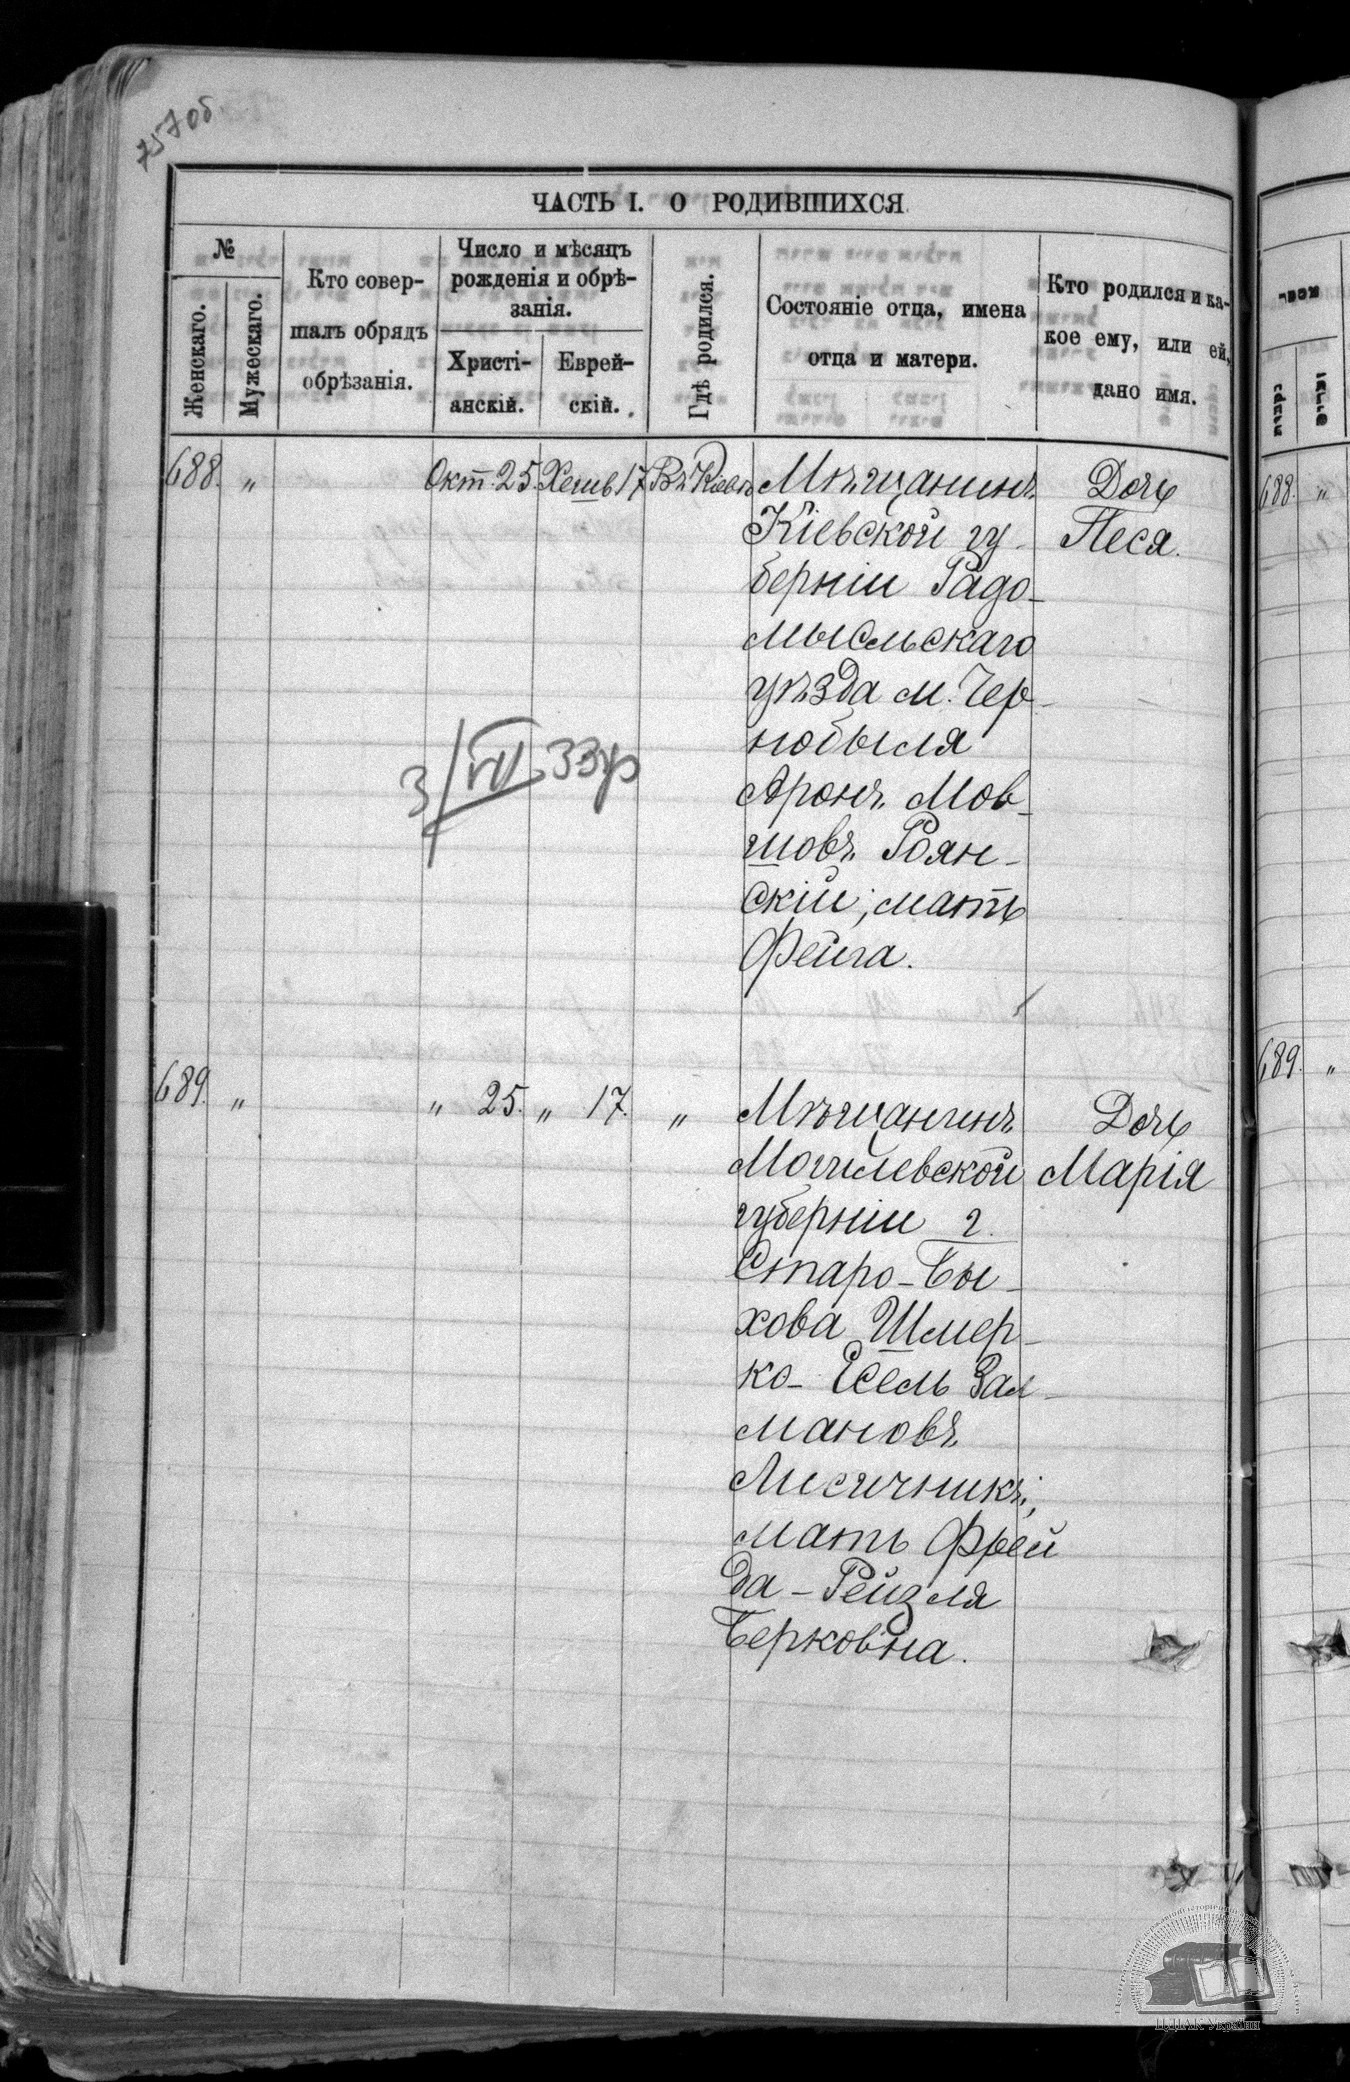 757об
ЧАСТЬ I. О РОДИВШИХСЯ
№
Женскаго.
Мужескаго.
Кто совер-
шалъ обрядъ
обрѣзанія.
Число и мѣсяцъ
рожденія и обрѣ-
занія.
Христі-
анскій.
Еврей-
скій.
Гдѣ родился.
Состояніе отца, имена
отца и матери.
Кто родился и ка-
кое ему, или ей,
дано имя.
688. „ Окт. 25. Хешв 17. Въ Кіевѣ Мѣщанинъ Дочь
Кіевской гу- Песя.
берніи Радо-
мысльскаго
уѣзда м. Чер-
нобыля
Аронъ Мов-
шовъ Роян-
скій; мать
Фейга.
3/VII 33г
689. „ „ 25. „ 17. „ Мѣщанинъ Дочь
Могилевской Марія
губерніи г.
Старо-Бы-
хова Шмер-
ко-Есель Зал-
мановъ
Лисичникъ;
мать Фрей
да-Рейзля
Берковна.
נקבות
זכרים
688. „
689. „
ЦДІАК України